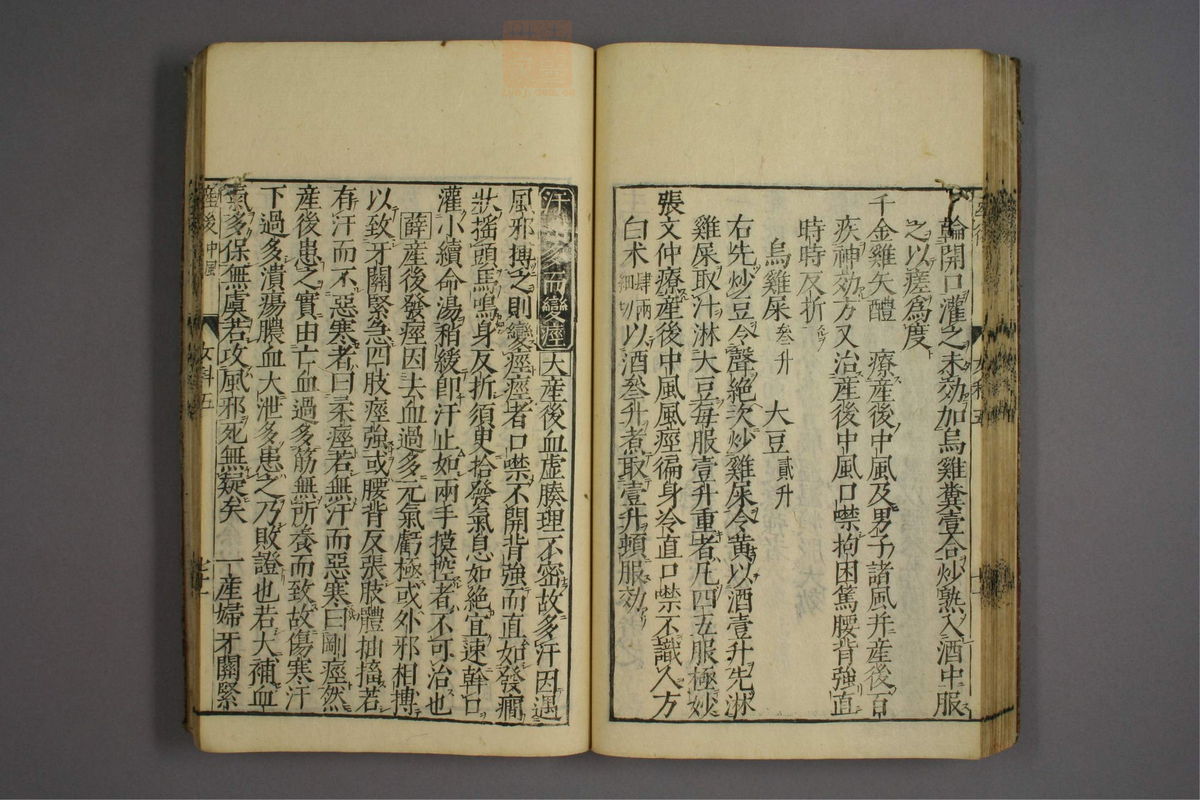 斡開口灌之未効加烏雞糞壹合炒熟入酒中服
之以瘥爲度
千金雞矢醴　療産後中風及男子諸風并産後百
疾神効方又治産後中風口噤拘困篤腰背強直
時時反折
烏雞屎叁升　大豆貳升
右先炒豆令聲絕次炒雞屎令黄以酒壹升先淋
雞屎取汁淋大豆每服壹升重者凡四五服極妙
張文仲療産後中風風痙徧身冷直口噤不識人方
白术肆兩細切以酒叁升煮取壹升頓服効
女科五
汗出多而變痙 大産後血虛腠理不密故多汗因遇
風邪搏之則變痙痙者口噤不開背強而直如發癇
狀搖頭馬鳴身反折須臾拾發氣息如絕宜速幹口
灌小續命湯稍緩卽汗止如兩手摸摚者不可治也
薛産後發痙因去血過多元氣虧極或外邪相搏
以致牙關緊急四肢痙強或腰背反張肢體抽搐若
有汗而不惡寒者曰柔痙若無汗而惡寒曰剛痙然
産後患之實由亡血過多筋無所養而致故傷寒汗
下過多潰瘍膿血大泄多患之乃敗證也若大補血
氣多保無虞若攻風邪死無疑矣　一産婦牙關緊
産後中風　女科五　七十一